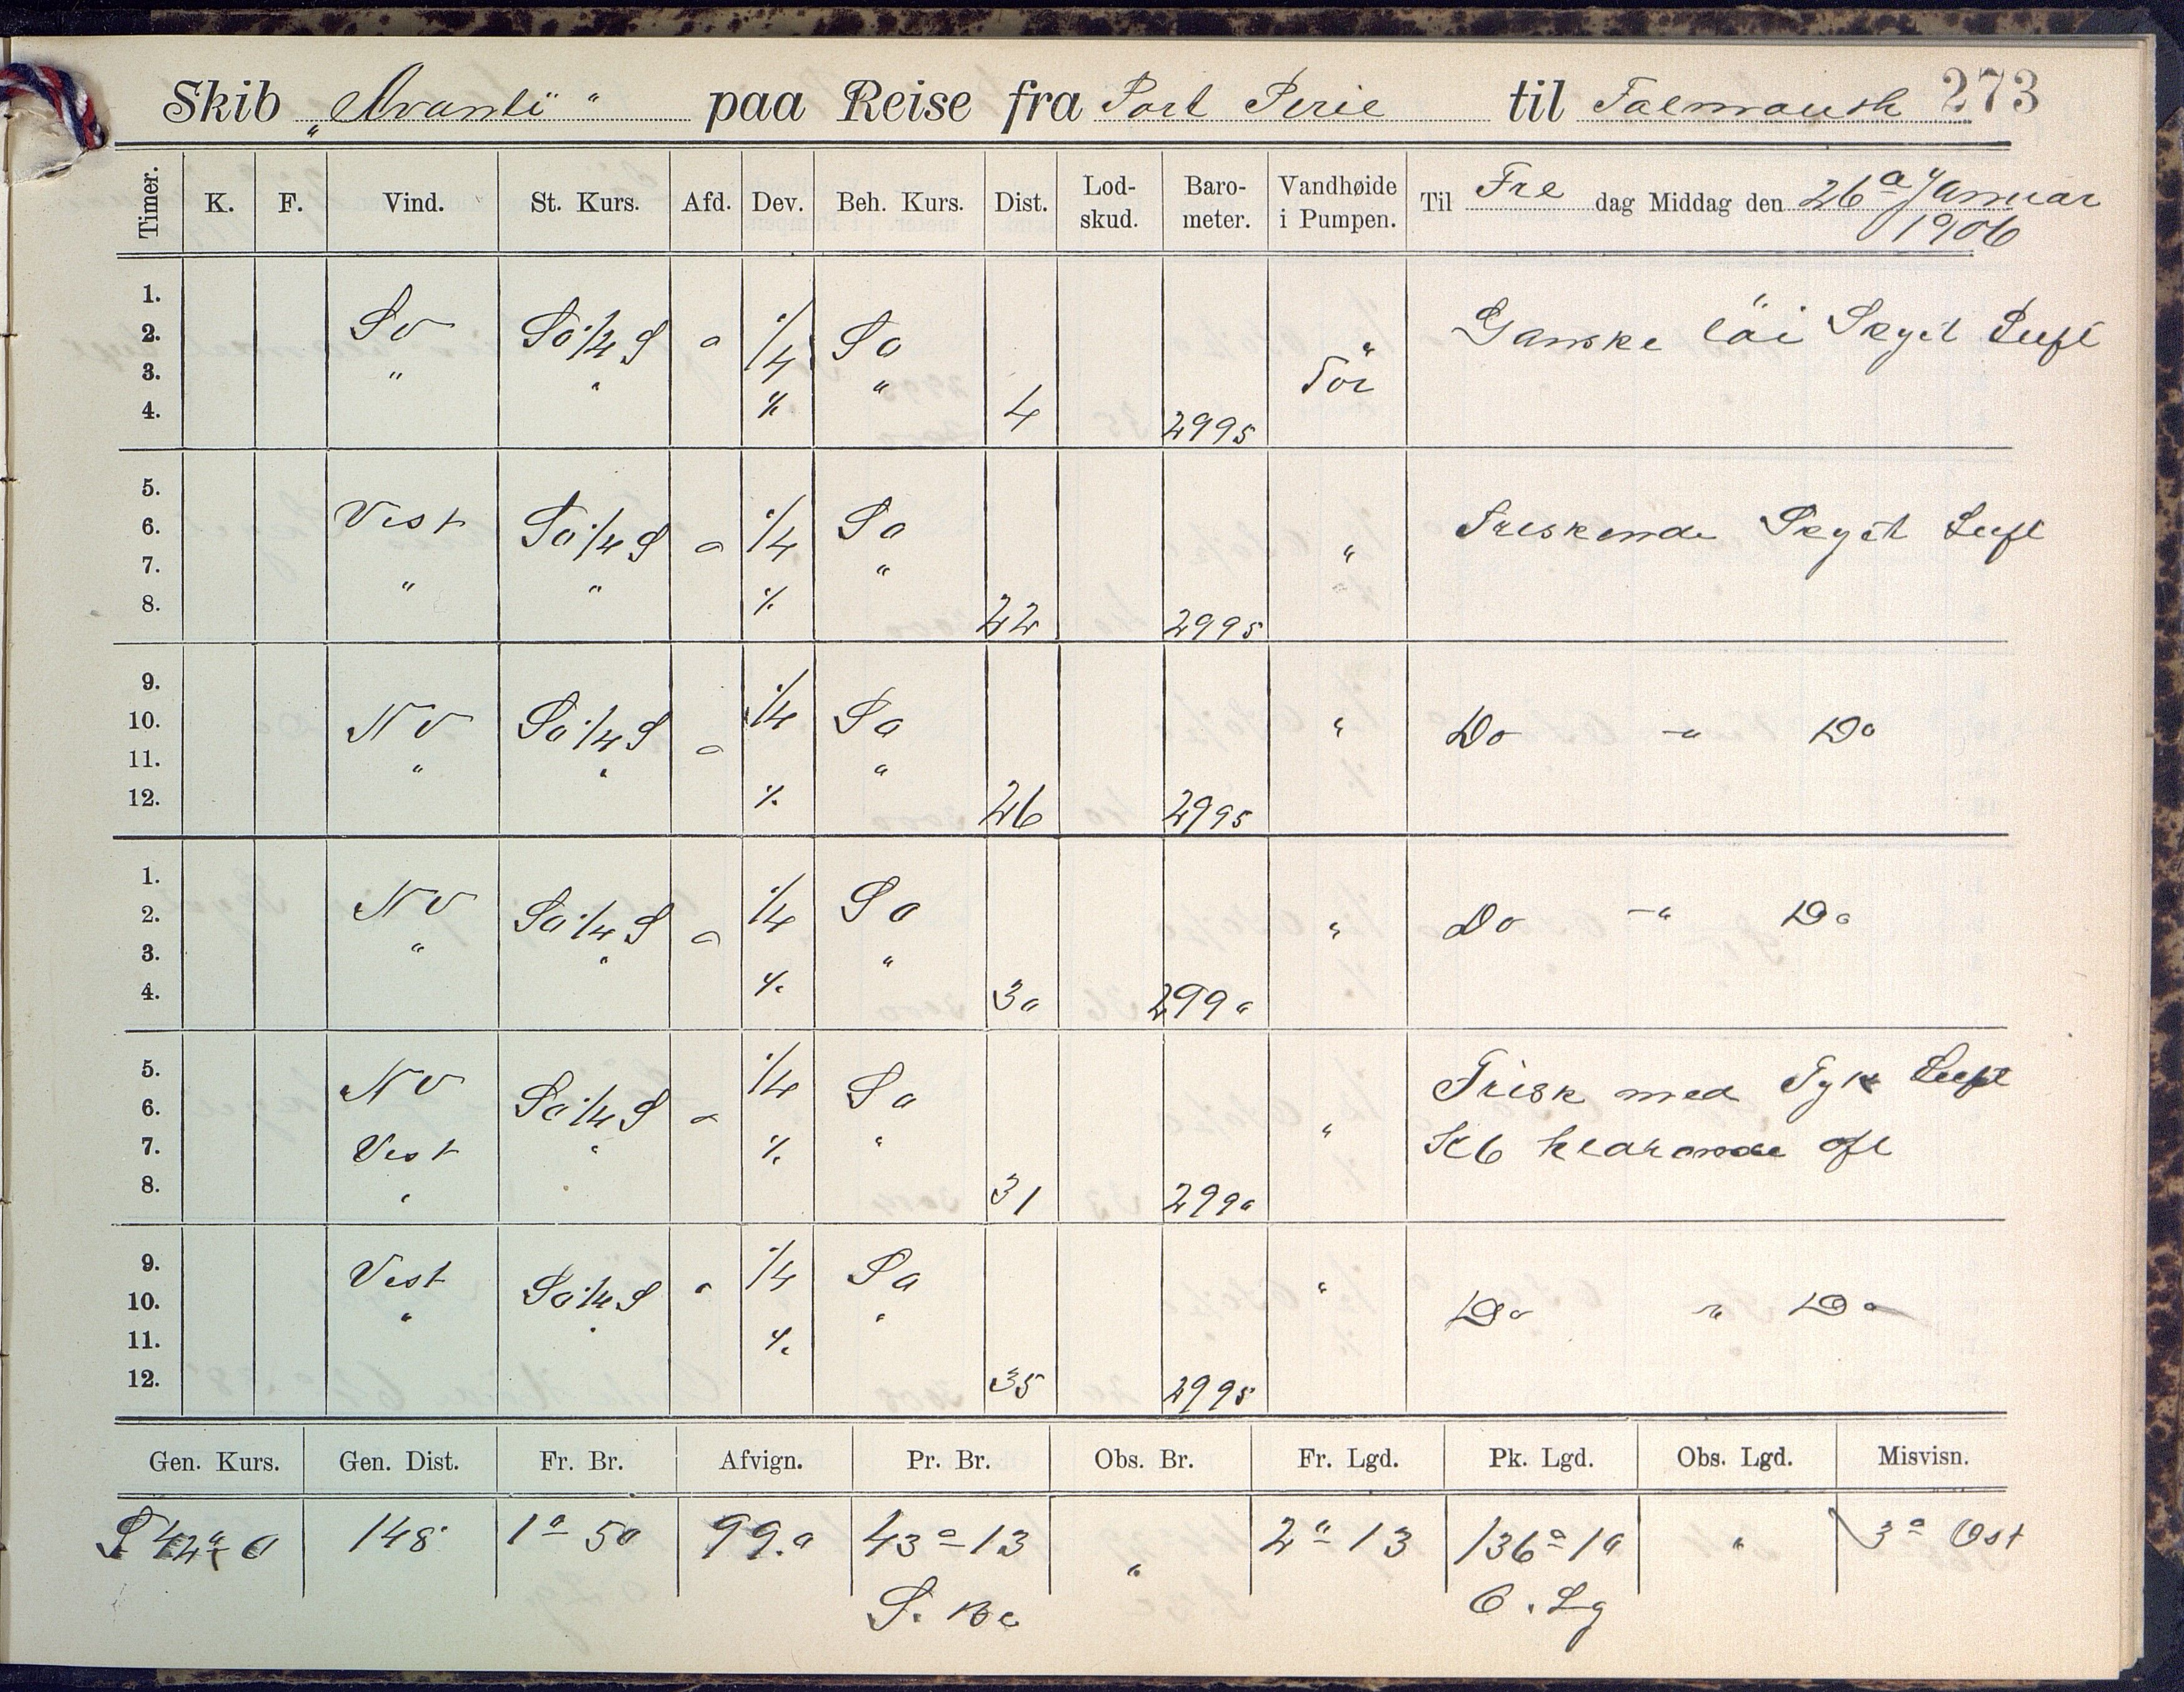 Skib „Avanti“ paa Reise fra Port Pirie til Falmouth 273
Timer. K. F. Vind. St. Kurs. Afd. Dev. Beh. Kurs. Dist. Lod-skud. Baro-meter. Vandhøide i Pumpen. Til Fre dag Middag den 26a Januar 1906
1.
2. So So 1/4 S o 1/4 So " Ganske löi Skyet Luft
3. " " " Tör
4. % 4 2995
5.
6. Vest So 1/4 S o 1/4 So " Friskende Skyet Luft
7. " " "
8. % 22 2995
9.
10. NV So 1/4 S o 1/4 So " Do -"- Do
11. " " "
12. % 26 2995
1.
2. NV So 1/4 S o 1/4 So " Do -"- Do
3. " " "
4. % 30 2990
5. NV 1/4 So Frisk med Tyk Luft
6. So 1/4 S o
7. Vest " % " " Kl 6 klarende op
8. " 31 2990
9. Vest 1/4 So "
10. " So 1/4 S o " Do " Do
11. " %
12. 35 2995
Gen. Kurs. Gen. Dist. Fr. Br. Afvign. Pr. Br. Obs. Br. Fr. Lgd. Pk. Lgd. Obs. Lgd. Misvisn.
S 42° O 148 1°-50 99.0 43°-13 " 2°-13 136°-10 " 3° Ost
S. Br O. Lg